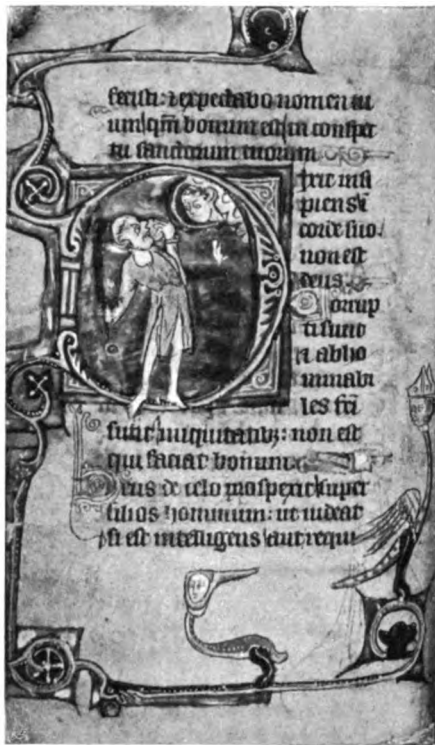 fecisti: ⁊ expectabo nomen tu
um qm̄ bonum est in conspec
tu sanctorum tuorum
Dixit insi
piens ī
corde suo.
non est
deus
Corrup
ti sunt
⁊ abho
minabi
les fc̄i
sunt iniquitatibꝫ: non est
qui faciat bonum.
Deus de celo prospexit super
filios hominum: ut uideat
si est intelligens aut requi